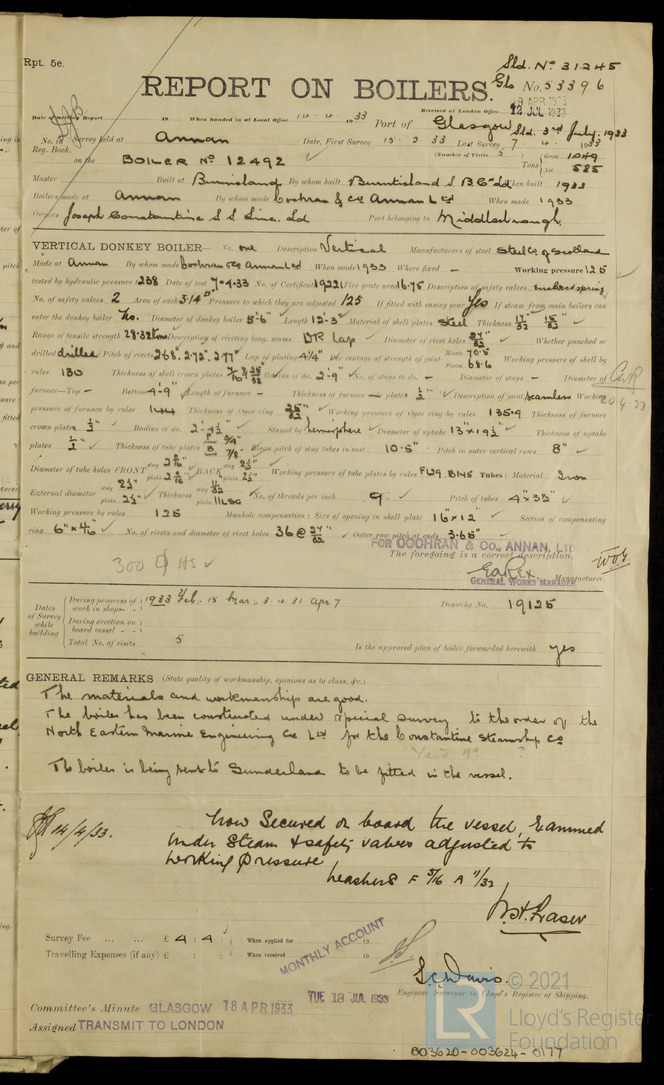 Rpt. 5e.
Sld. No 31245
REPORT ON BOILERS.
Gls No. 53396
Received at London Office 12 JUL 1933
Date of writing Report 19 When handed in at Local Office 14.4.1933 Port of Glasgow Sld. 3rd July, 1933
No. in Survey held at Annan Date, First Survey 15.2.33 Last Survey 7.4.1933
Reg. Book.
on the BOILER No 12492 (Number of Visits 5) Tons Gross 1049 Net 585
Master Built at Burntisland By whom built Burntisland S. B. Co Ld When built 1933
Boilers made at Annan By whom made Cochran & Co Annan Ld When made 1933
Owners Joseph Constantine S S Line. Ld Port belonging to Middlesbrough.
VERTICAL DONKEY BOILER— No. one Description Vertical Manufacturers of steel Steel Co of Scotland
Made at Annan By whom made Cochran & Co Annan Ld When made 1933 Where fixed – Working pressure 125
tested by hydraulic pressure to 238 Date of test 7-4-33 No. of Certificate 19221 Fire grate area 16.75 Description of safety valves enclosed spring
No. of safety valves 2 Area of each 3.14 Pressure to which they are adjusted 125 If fitted with easing gear Yes If steam from main boilers can
enter the donkey boiler No. Diameter of donkey boiler 5'-6" Length 12'-3" Material of shell plates steel Thickness 17/32 15/32
Range of tensile strength 28-32 tons Description of riveting long. seams DR Lap Diameter of rivet holes 27/32 Whether punched or
drilled drilled Pitch of rivets 2.68" 2.72" 2.77" Lap of plating 4 1/4" Per centage of strength of joint Rivets 70.5 Plates 68.6 Working pressure of shell by
rules 130 Thickness of shell crown plates Radius of do. 2'-9" No. of stays to do. – Diameter of stays – Diameter of
furnace—Top – Bottom 4'-9" Length of furnace – Thickness of furnace plates 1/2" Description of joint seamless Working
pressure of furnace by rules 144 Thickness of Ogee ring 25/32 Working pressure of Ogee ring by rules 135.9 Thickness of furnace
crown plates 1/2" Radius of do. 2'-4 1/2" Stayed by hemisphere Diameter of uptake 13" x 19 1/2" Thickness of uptake
plates 1/2" Thickness of tube plates F 3/4" B 7/8" Mean pitch of stay tubes in nest 10.5" Pitch in outer vertical rows 8"
Diameter of tube holes FRONT stay 2 9/16" plain 2 9/16" BACK stay 2 1/2" plain 2 1/2" Working pressure of tube plates by rules F 129. B 145 Tubes: Material Iron
External diameter stay 2 1/2" plain 2 1/2" Thickness stay 11/32 plain 11 LSG No. of threads per inch 9 Pitch of tubes 4" x 3 3/8"
Working pressure by rules 125 Manhole compensation: Size of opening in shell plate 16" x 12" Section of compensating
ring 6" x 7/16" No. of rivets and diameter of rivet holes 36 @ 27/32 Outer row pitch at ends 3.65"
300 HS
FOR COCHRAN & Co., ANNAN, LTD
The foregoing is a correct description,
GENERAL WORKS MANAGER Manufacturer.
Dates of Survey while building
During progress of work in shops - - 1933 Feb. 15 Mar. 3. 10. 31 Apr 7 Drawing No. 19125
During erection on board vessel - -
Total No. of visits 5
Is the approved plan of boiler forwarded herewith yes
GENERAL REMARKS (State quality of workmanship, opinions as to class, &c.)
The materials and workmanship are good.
The boiler has been constructed under special survey to the order of the
North Eastern Marine Engineering Co Ltd for the Constantine Steamship Co
Yard No ?
The boiler is being sent to Sunderland to be fitted in the vessel.
14/4/33.
Now Secured on board the vessel, Examined
under Steam & safety valves adjusted to
working pressure
Washers F 5/16 A 11/32
W. H. Fraser
Survey Fee ... ... £ 4 : 4 : When applied for 19
Travelling Expenses (if any) £ : : When received 19
MONTHLY ACCOUNT
S. C. Davis.
Engineer Surveyor to Lloyd's Register of Shipping.
TUE 18 JUL 1933
Committee's Minute GLASGOW 18 APR 1933
Assigned TRANSMIT TO LONDON
© 2021
LR
Lloyd's Register
Foundation
003620-003624-0177